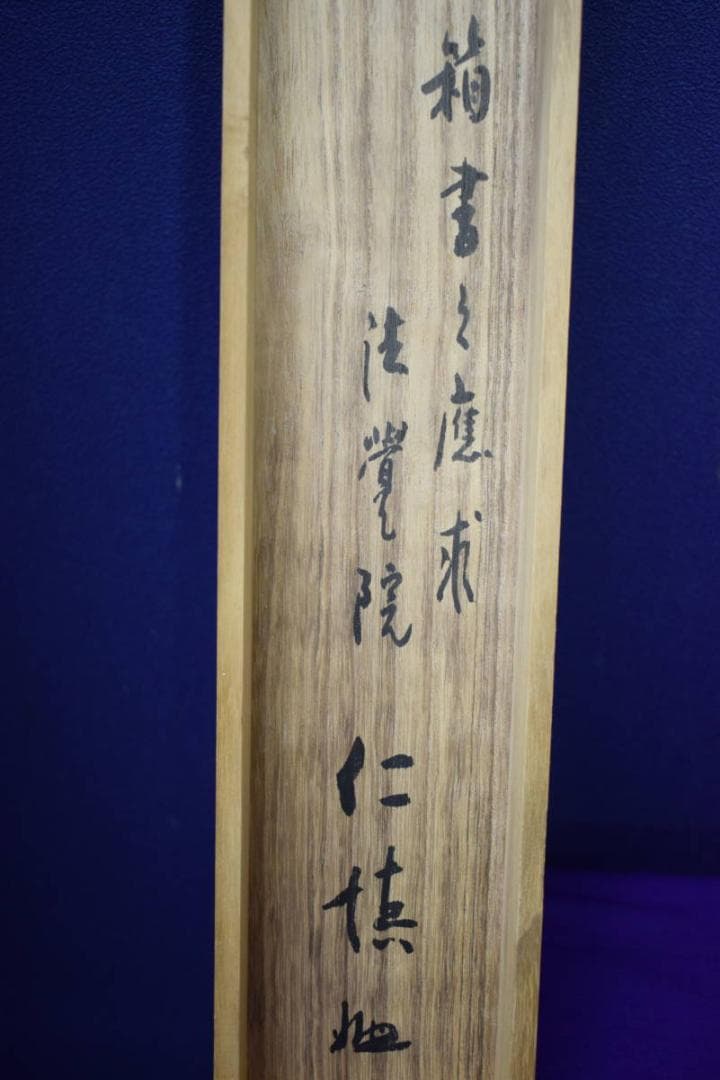 箱書之應求
法覺院
仁慎